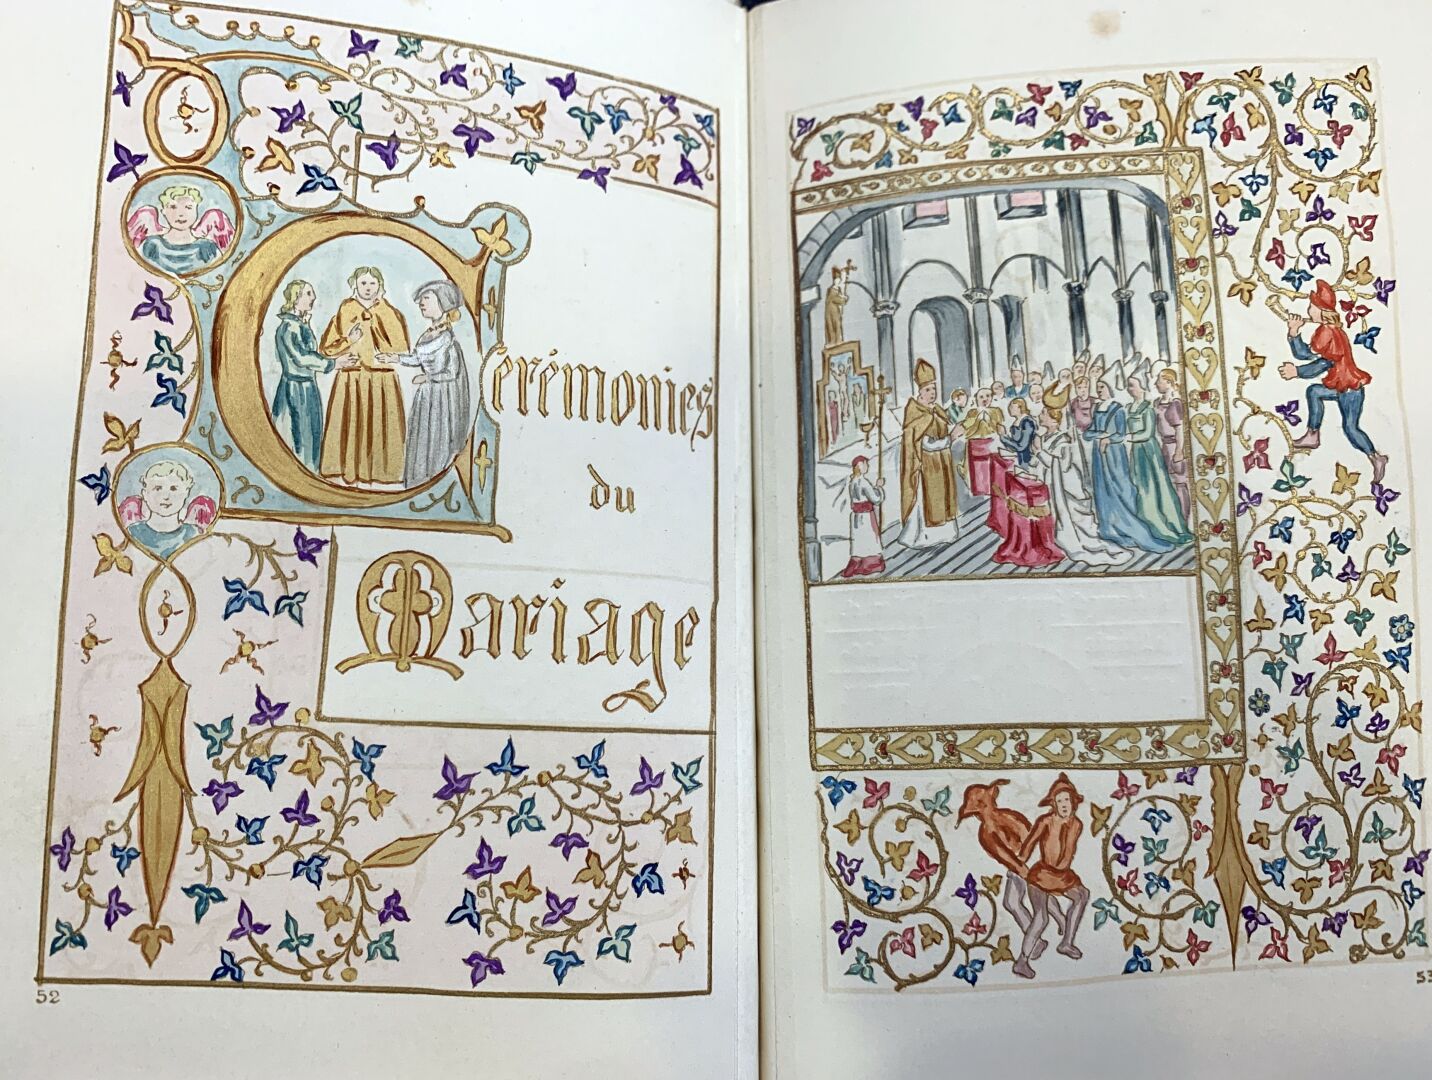 Cérémonies
du
Mariage
52
53